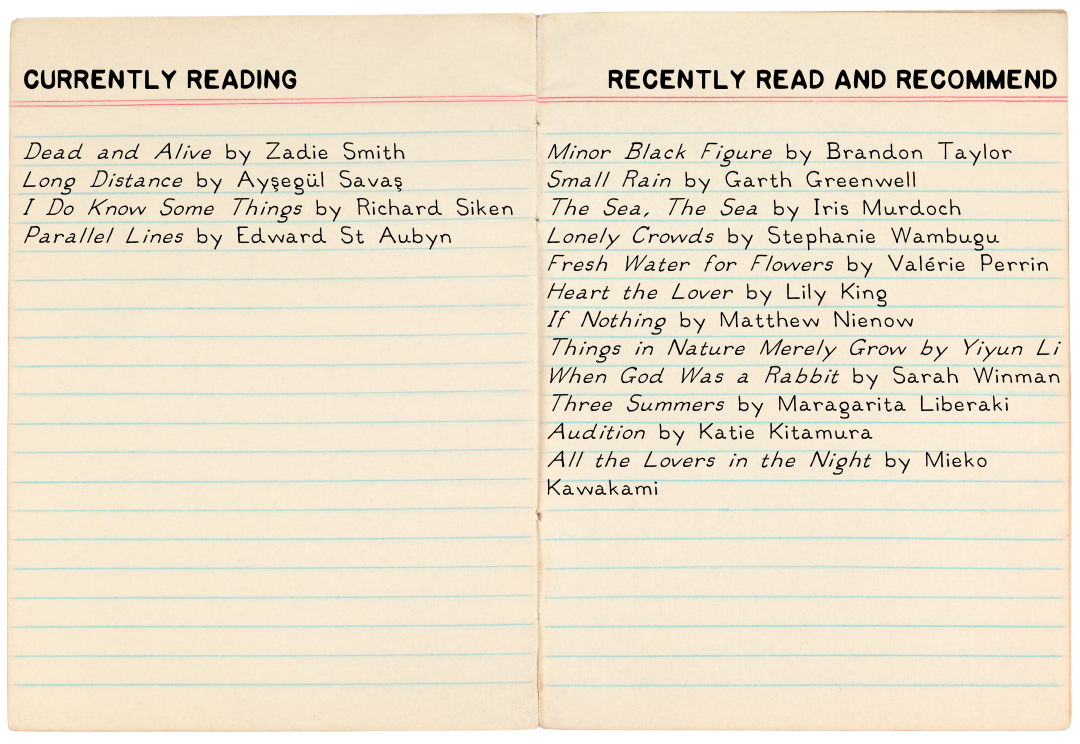 CURRENTLY READING
Dead and Alive by Zadie Smith
Long Distance by Ayşegül Savaş
I Do Know Some Things by Richard Siken
Parallel Lines by Edward St Aubyn
RECENTLY READ AND RECOMMEND
Minor Black Figure by Brandon Taylor
Small Rain by Garth Greenwell
The Sea, The Sea by Iris Murdoch
Lonely Crowds by Stephanie Wambugu
Fresh Water for Flowers by Valérie Perrin
Heart the Lover by Lily King
If Nothing by Matthew Nienow
Things in Nature Merely Grow by Yiyun Li
When God Was a Rabbit by Sarah Winman
Three Summers by Maragarita Liberaki
Audition by Katie Kitamura
All the Lovers in the Night by Mieko
Kawakami